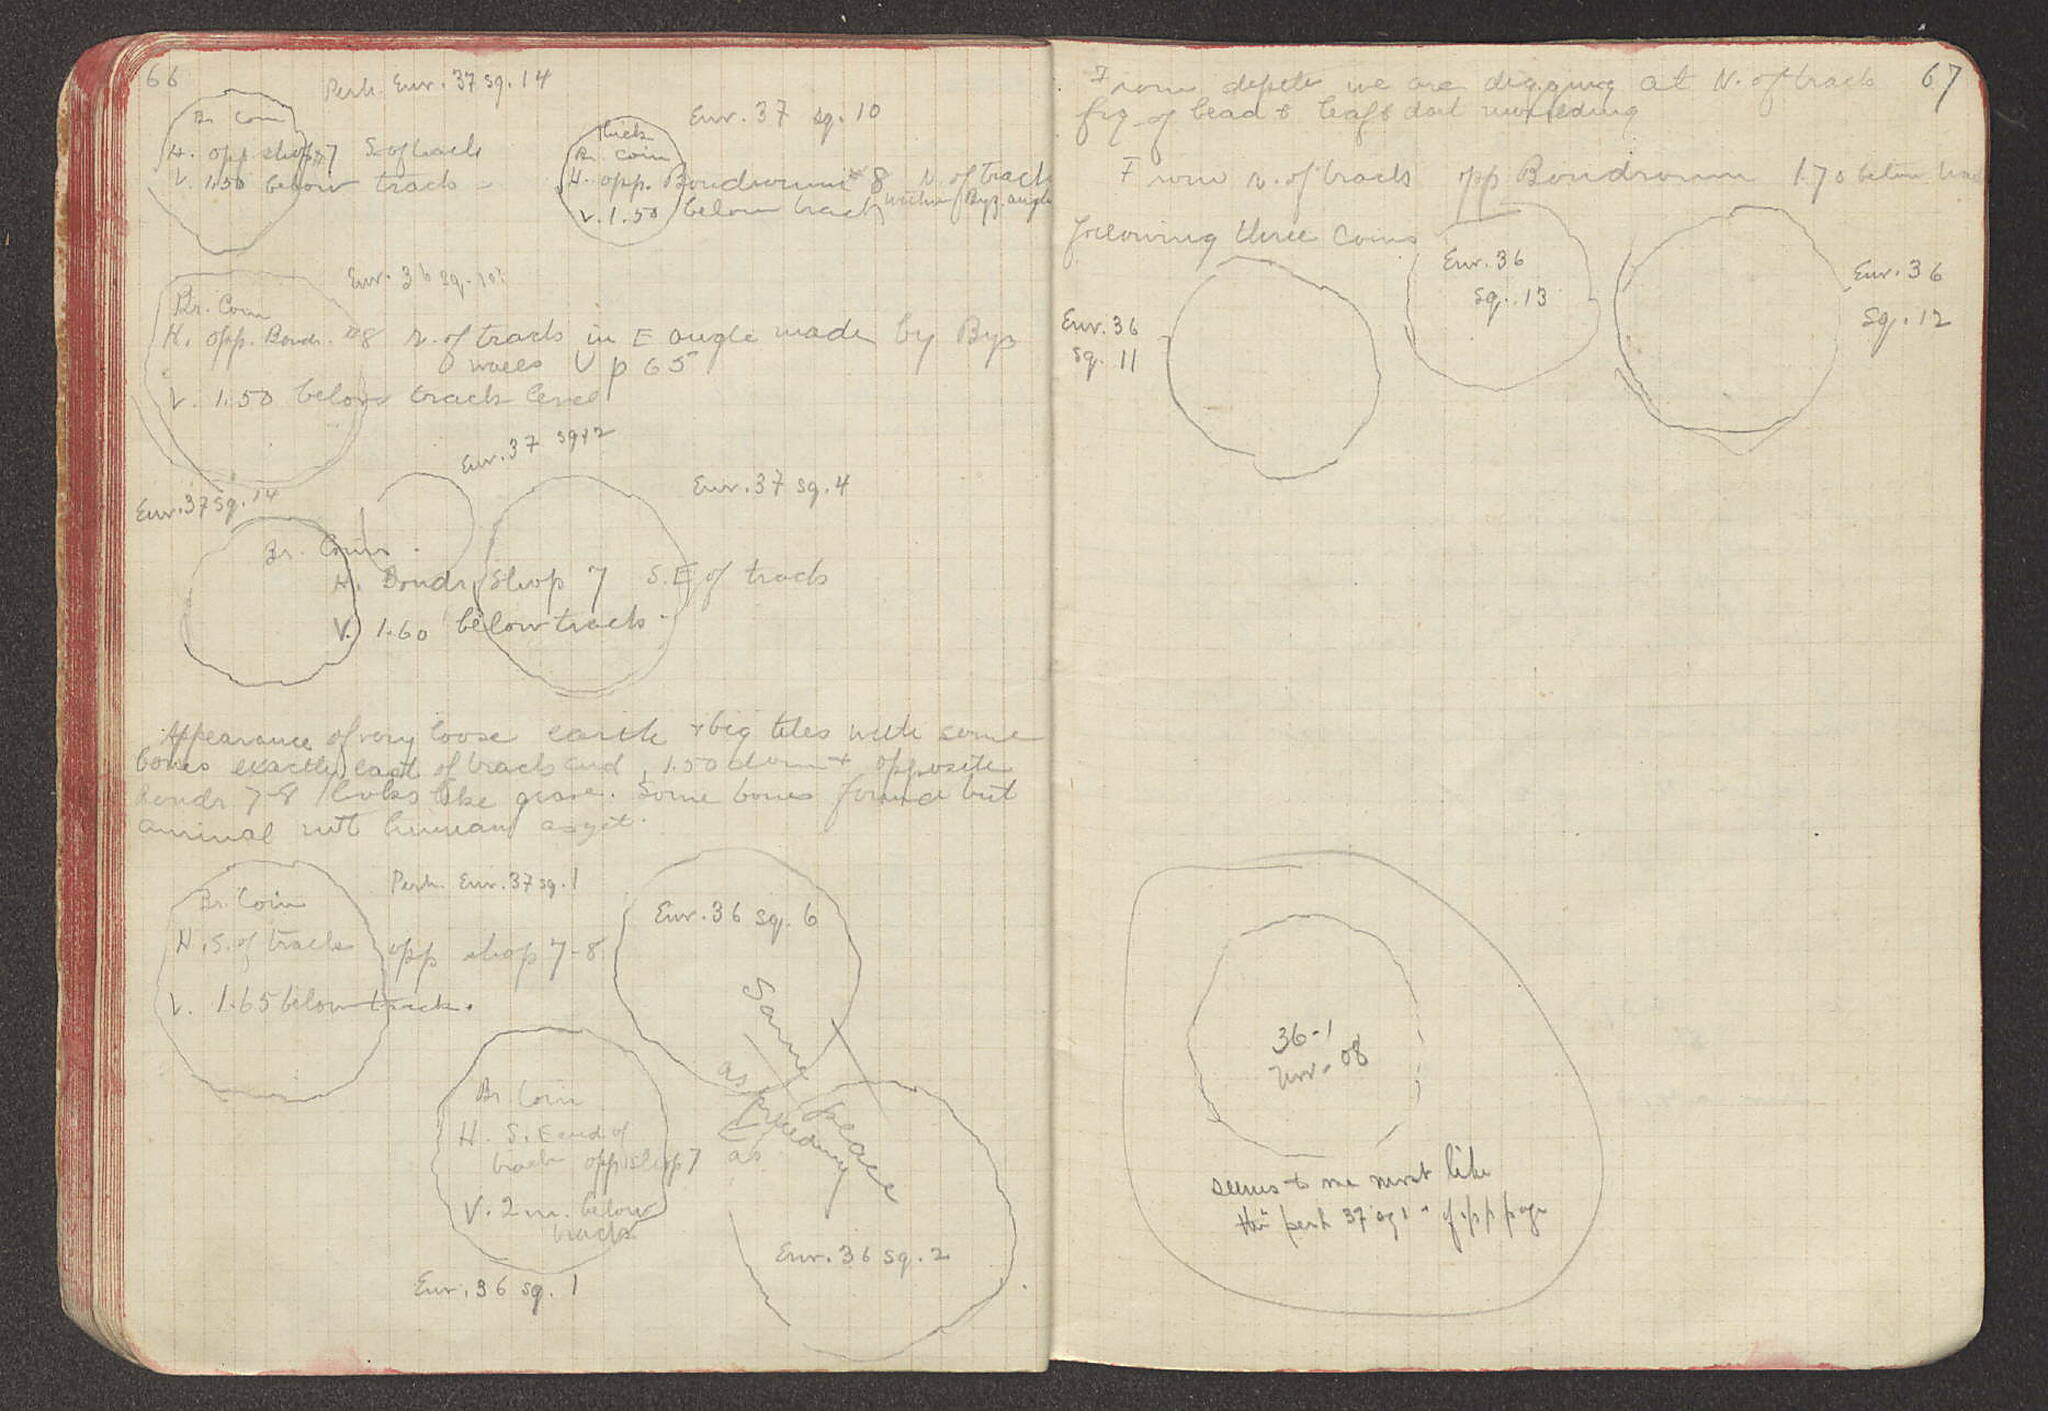 66
Perh. Eur. 37 sq. 14
Br. Coin
H. opp shop 7 S of track
V. 1.50 below track
Eur. 37 sq. 10
thick
Br. coin
H. opp. Boudroumi 8 N. of track
within Byz. angle
V. 1.50 below track
Eur. 36 sq. 10
Br. Coin
H. opp. Boudr. 8 N. of track in E angle made by Byz
walls V p 65
V. 1.50 below track level
Eur. 37 sq. 2
Eur. 37 sq. 4
Eur. 37 sq. 14
Br. Coins
H. Boudr. Shop 7 S.E of track
V. 1.60 below track
Appearance of very loose earth + big tiles with some
bones exactly east of track end, 1.50 down + opposite
Boudr 7-8 looks like grave. Some bones found but
animal not human as yet.
Perh. Eur. 37 sq. 1
Br. Coin
H. S. of track opp shop 7-8
V. 1.65 below track.
Eur. 36 sq. 6
Same place
as preceding
Br Coin
H. S. E end of
track opp shop 7 as
V. 2 m. below
track
Eur. 36 sq. 1
Eur. 36 sq. 2
67
From depth we are digging at N. of track
frg of bead & leaf & dart
From N. of track opp Boudroumi 1.70 below track
following three coins
Eur. 36
sq. 11
Eur. 36
sq. 13
Eur. 36
sq. 12
36-1
Eur. 08
seems to me most like
the perh 37 sq 1 of opp page